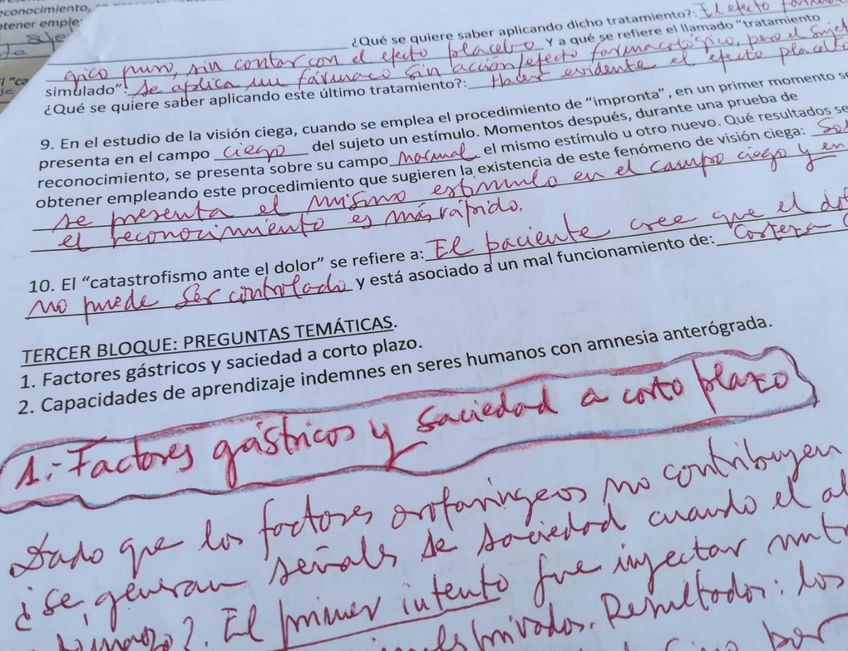 econocimiento,
btener emple
¿Qué se quiere saber aplicando dicho tratamiento?: El efecto
gico puro, sin contar con el efecto placebo Y a qué se refiere el llamado "tratamiento
simulado"! Se aplica un fármaco sin acción/efecto farmacológico, pero el
¿Qué se quiere saber aplicando este último tratamiento?: Hacer evidente el efecto placebo
9. En el estudio de la visión ciega, cuando se emplea el procedimiento de "impronta", en un primer momento se
presenta en el campo ciego del sujeto un estímulo. Momentos después, durante una prueba de
reconocimiento, se presenta sobre su campo normal el mismo estímulo u otro nuevo. Qué resultados se
obtener empleando este procedimiento que sugieren la existencia de este fenómeno de visión ciega:
se presenta el mismo estímulo en el campo ciego y en
el reconocimiento es más rápido.
10. El "catastrofismo ante el dolor" se refiere a: El paciente cree que el do
no puede ser controlado y está asociado a un mal funcionamiento de: Corteza
TERCER BLOQUE: PREGUNTAS TEMÁTICAS.
1. Factores gástricos y saciedad a corto plazo.
2. Capacidades de aprendizaje indemnes en seres humanos con amnesia anterógrada.
1.- Factores gástricos y saciedad a corto plazo
Dado que los factores orofaríngeos no contribuyen
¿se generan señales de saciedad cuando el al
El primer intento fue inyectar nut
privados. Resultados: los
por